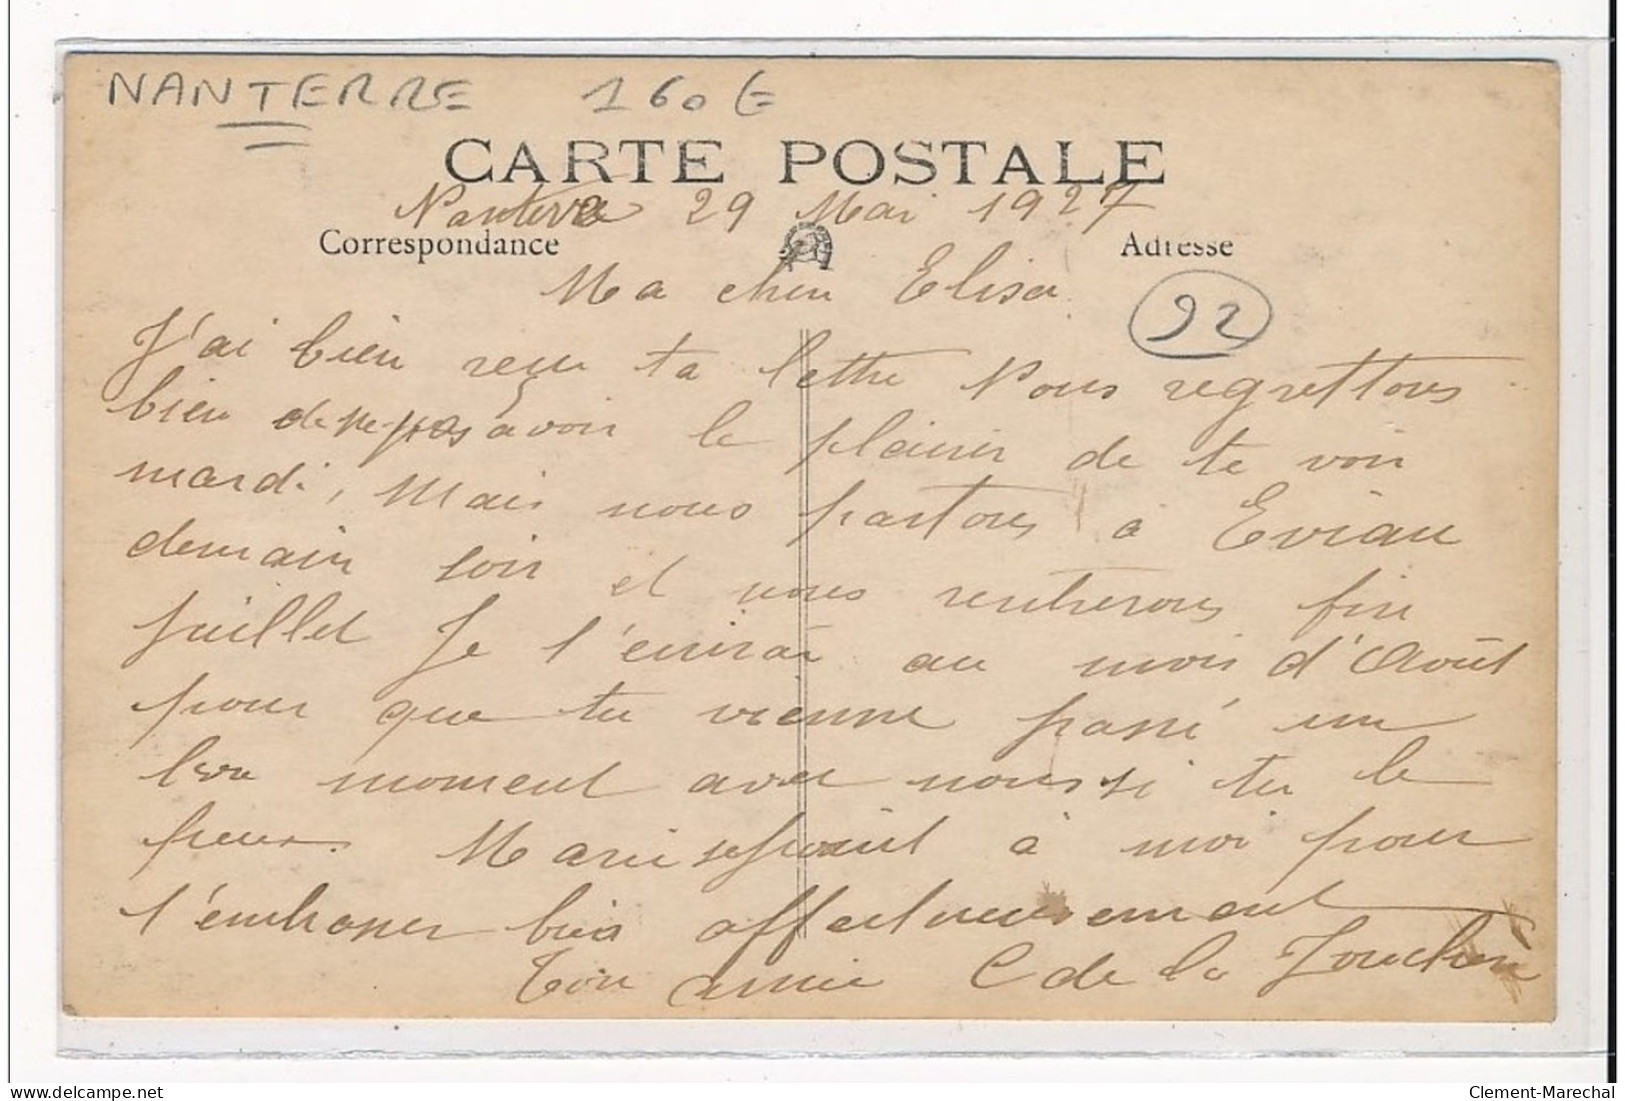 NANTERRE 160 €
CARTE POSTALE
Nanterre 29 Mai 1927
Correspondance Adresse
Ma cher Elisa
92
J'ai bien reçu ta lettre Nous regrettons
bien de ne pas avoir le plaisir de te voir
mardi, Mais nous partons à Evian
demain soir et nous rentrerons fin
juillet Je t'écrirai au mois d'Août
pour que tu vienne passé un
bon moment avec nous si tu le
peux. Marie se joint à moi pour
t'embrasser bien affectueusement
Ton amie C de la
delcampe.net
Clement-Marechal